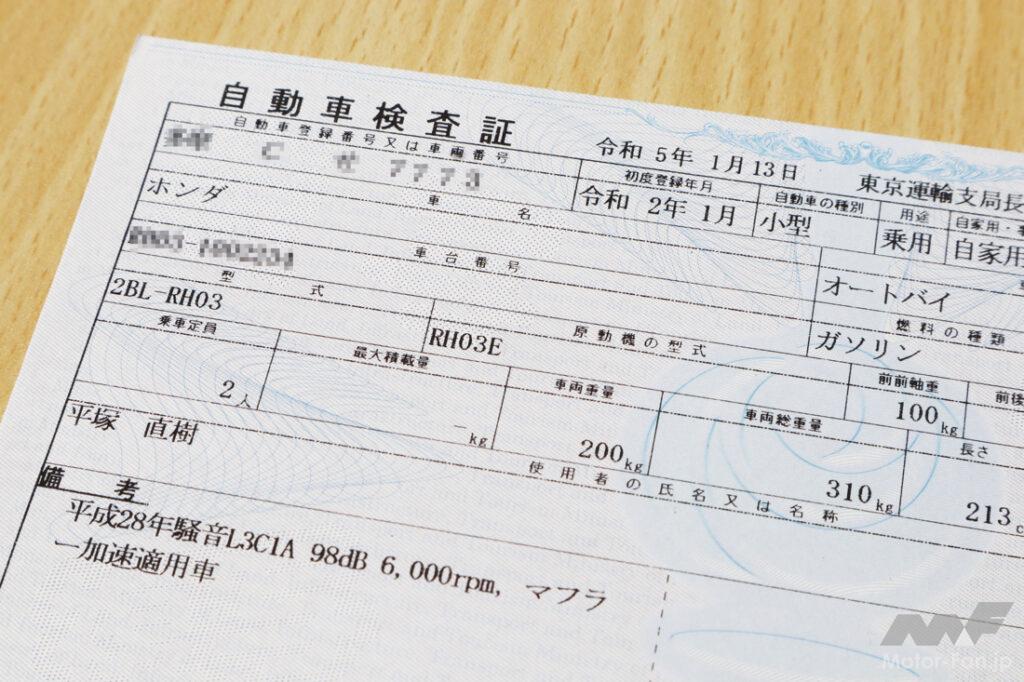 自動車検査証
自動車登録番号又は車両番号
7773
令和 5年 1月13日
東京運輸支局長
初度登録年月
自動車の種別
用途
自家用・
令和 2年 1月
小型
乗用
自家用
ホンダ
車名
車台番号
オートバイ
型式
2BL-RH03
原動機の型式
RH03E
燃料の種類
ガソリン
乗車定員
最大積載量
車両重量
車両総重量
前前軸重
前後
2人
-kg
200kg
310kg
100kg
長さ
213c
平塚 直樹
使用者の氏名又は名称
備考
平成28年騒音L3C1A 98dB 6,000rpm, マフラ
ー加速適用車
Motor-Fan.jp